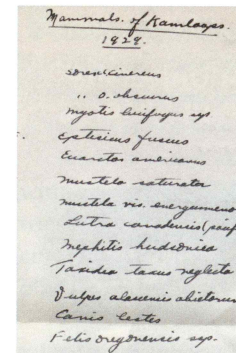 Mammals of Kamloops.
1929.
Sorex cinereus
" o. obscurus
Myotis lucifugus ssp.
Eptesicus fuscus
Euarctos americanus
Mustela saturata
Mustela vis. energumenos
Lutra canadensis (pacif
Mephitis hudsonica
Taxidea taxus neglecta
Vulpes alascensis abietorum
Canis lestes
Felis oregonensis ssp.